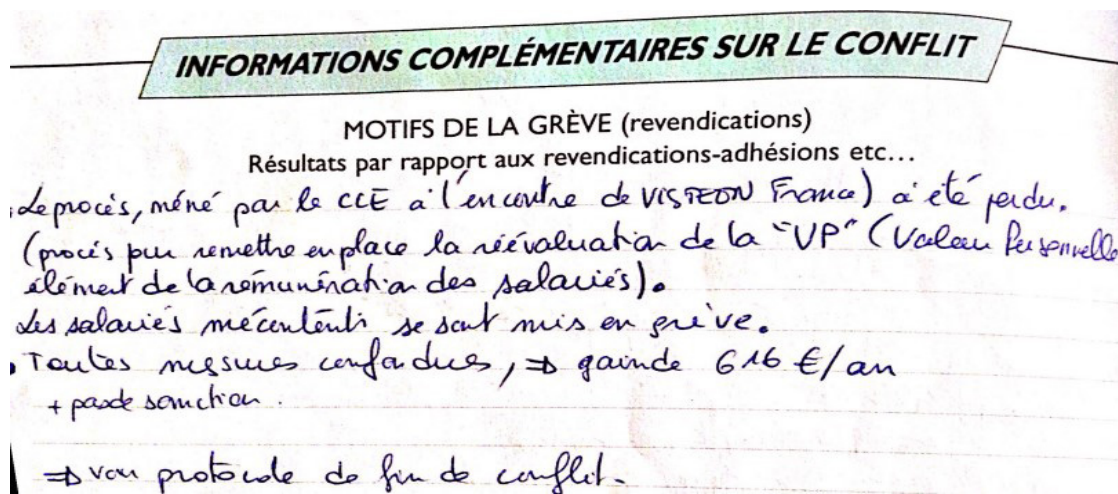 INFORMATIONS COMPLÉMENTAIRES SUR LE CONFLIT
MOTIFS DE LA GRÈVE (revendications)
Résultats par rapport aux revendications-adhésions etc...
Le procès, méné par le CCE à l'encontre de VISTEON France) a été perdu.
(procès pur remettre en place la réévaluation de la "VP" (Valeur Personnelle
élément de la rémunération des salariés).
Les salariés mécontents se sont mis en grève.
• Toutes mesures confondues, ⇒ gain de 616 €/an
+ pas de sanction.
⇒ voir protocole de fin de conflit.